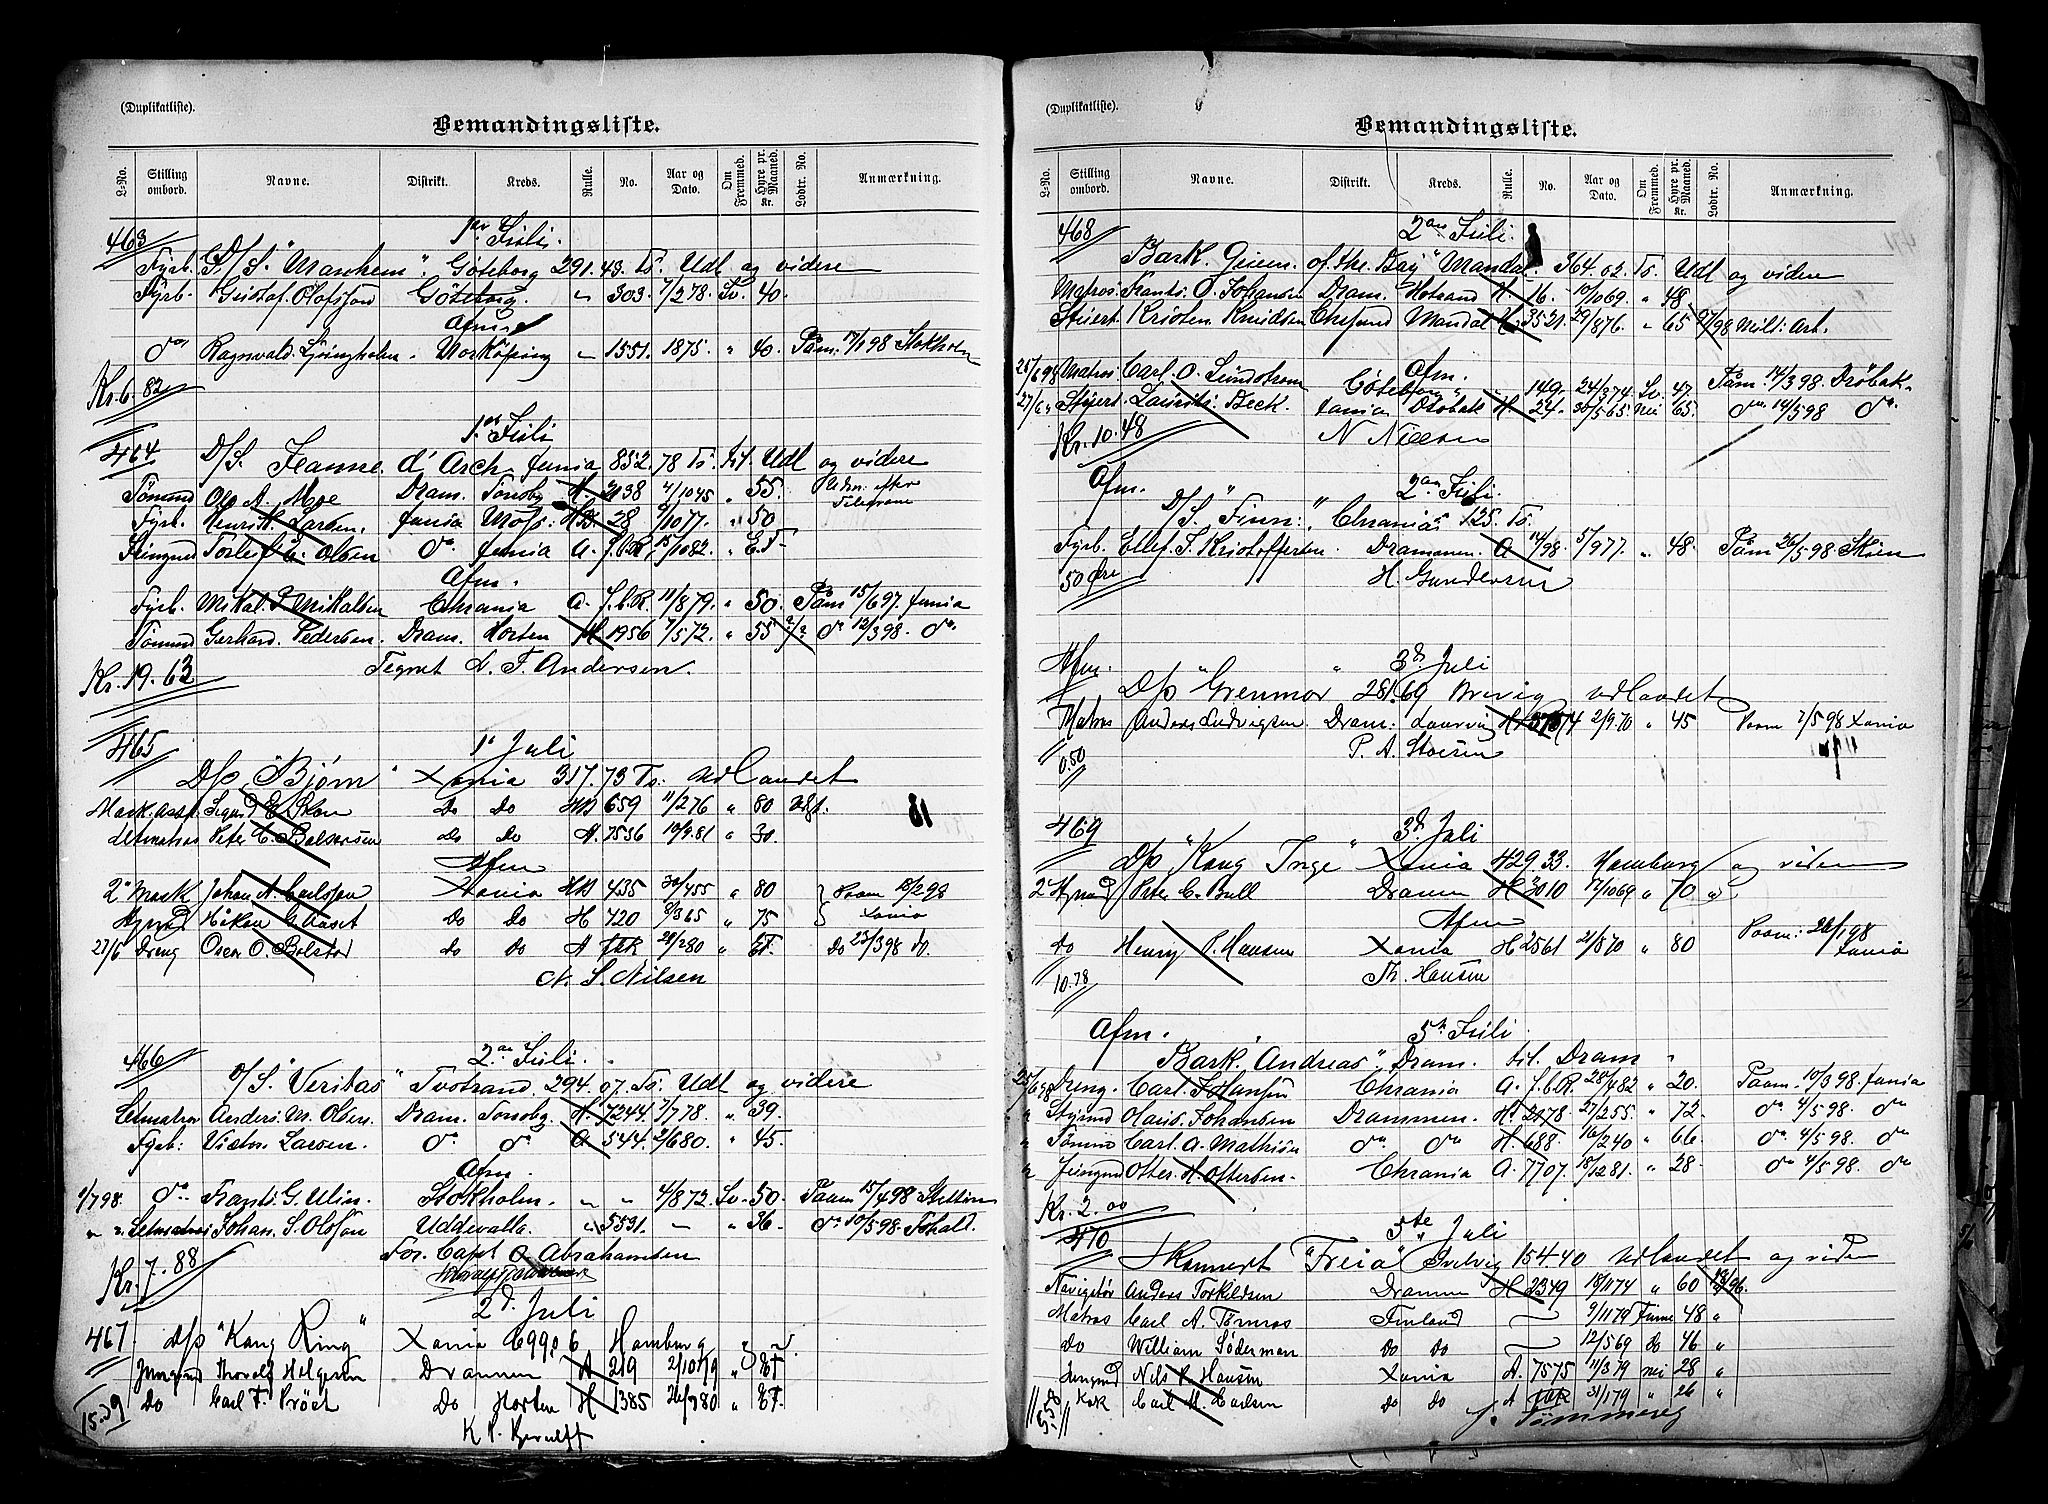 (Duplikatliste).
Bemandingsliste.
L-No. Stilling ombord. Navne. Distrikt. Kreds. Rulle. No. Aar og Dato. Om Fremmed. Hyre pr. Maaned. Kr. Lodtr. No. Anmærkning.
463 1ste Juli.
D/S. "Manhem". Göteborg 291.43. Ts. Udl og videre
Fyrb. Gustaf. Olofsson Göteborg. " 303. 7/278. Sv. 40.
Afm.
do Ragnvald. Ljungholm. Norköping " 1551. 1875. " 40. Paam: 17/1 98 Stokholm
Kr. 6. 82
464 1ste Juli
D/S. Jeanne. d'Arch. Xania 852.78 Ts. til. Udl og videre
Tömmd Ole A. Moe Dram. Tønsbg H. 3138 4/1045 " 55. Udm. efter Telegram
Fyrb. Henrik. Larsen. Xania Moss. HB 28 9/1077. " 50
Jungmd Torleif A. Olsen do Xania A. J.C.R. 15/1082. " E.F.
Afm.
Fyrb. Mikal. Mikalsen Chrania A. J.C.R. 11/879. " 50. Paam 15/697. Xania
Tömmd Gerhard. Pedersen. Dram. Horten H 1956 7/572. " 55 ?/? do 12/398. do.
Tegnet L. F. Andersen.
Kr. 19. 63
465 1ste Juli
D/S "Bjørn" Xania 317.73 Ts: udlandet
Mask. assp. Sigurd E. Do Do HB 659 11/276 " 80 Udgt.
Letmatros Peter C. Do Do A. 7536 19/9.81 " 30.
81
Afm
2' Mask Johan A. Carlsson Xania HB 435 30/455 " 80 Paam 18/2 98 Xania
Styrmd Håkon G. Do Do H 720 9/365 " 75
27/6 Dreng Oscar O. Bolstad do Do A JCR 28/280 " EF. Do 23/398 do.
N. S. Nilsen
466 2den Juli.
D/S. "Veritas" Tvetrand. 294.07. Ts. Udl og videre
Letmatros Anders. M. Olsen. Dram. Tønsbg. H. 7244 7/778. " 39.
Fyrb: Victor. Larsen. do do A 544. 2/680. " 45.
Afm.
1/798. do Frants. G. Ulin. Stokholm. " " 4/872. Sv. 50. Paam 15/498 Stettin
" " Letmatros Johan. S. Olofson Uddevalla. " 5531. " 36. do 10/598.
For. Capt O. Abrahamsen
Kr. 7. 88
2d. Juli
467. D/S "Kong Ring" Xania 699,06 Hamburg
Jungmd Thorvald Helgesen Drammen A 219 2/1079 " EF
Do Carl F. Do Horten H 1385 26/980 " EF.
15.39
(Duplikatliste).
Bemandingsliste.
L-No. Stilling ombord. Navne. Distrikt. Kreds. Rulle. No. Aar og Dato. Om Fremmed. Hyre pr. Maaned. Kr. Lodtr. No. Anmærkning.
468 2den Juli.
Bark. Queen. of the Bay" Mandal. 364.02. Ts. Udl og videre
Matros. Frants. O. Johansen Dram. Hotrand H. 16. 10/1069. " 48.
Stuert. Kristen Knudsen Chrsand Mandal H. 3521. 29/876. " 65 27/98 Milt: Arb.
Afm.
25/698 Matros. Carl. O. Sundstrom Göteborg " 149. 24/374. Sv. 47. Paam. 14/398. Drøbak.
27/6 " Stuert. Laurits. Beck. Xania Drøbak H. 24. 30/565. Nei 65. do 14/598 do.
Kr. 10. 48 N Nielsen
Afm. 2den Juli.
D/S. "Finn." Chrania 125. Ts.
Fyrb. Ellef. S. Kristoffersen. Drammen. A 14/98. 5/977. " 48. Paam 26/598 Skien
50 Øre H. Gundersen
Afm. 3d. Juli
D/S "Grenmar" 281.69 Brevig udlandet
Matros Anders Ludvigsen Dram. Laurvig H 5757/4 2/9.70 " 45 Paam 2/598 Xania
0.50
469 3d. Juli
D/S "Kong Inge" Xania 429.33. Hamburg og viden
2' Styrmd Peter C. Bull Drammen H 3010 17/1069 " 70
Afm
Do Henry P. Hansen Xania H 2561 21/870 " 80 Paam: 26/198 Xania
10.78 Th. Hansen
Afm. 5te Juli.
Bark. "Andreas", Dram. til. Dram
25/698 Dreng. Carl. Johansen Chrania A. J.C.R. 28/482 " 20. Paam. 10/398. Xania
" Styrmd Hans. Johansen Drammen. H. 2878. 27/255. " 72. do. 4/598. do
" Tømmd Carl. A. Mathisen do do H. 688. 16/240 " 66 do. 4/598. do
" Jungmd Otter. H. Ottersen. Chrania A. 7707. 18/1281. " 28. do 4/598. do
Kr. 2.00
470 5te Juli
Skonnert "Freia" Svelvig 154.40 udlandet og viden
Navigatør Anders Torkildsen Drammen H 2379 18/1174 " 60 13/96.
Matros Carl A. Törnros Finland 9/1179 Finne 48 "
do William Söderman do do 12/569 do 46 "
Jungmd Nils R. Hansen Xania A. 7575 11/379 nei 28 "
Kok Carl M. Carlsen do do A JCR 31/179 " 26 "
5.50